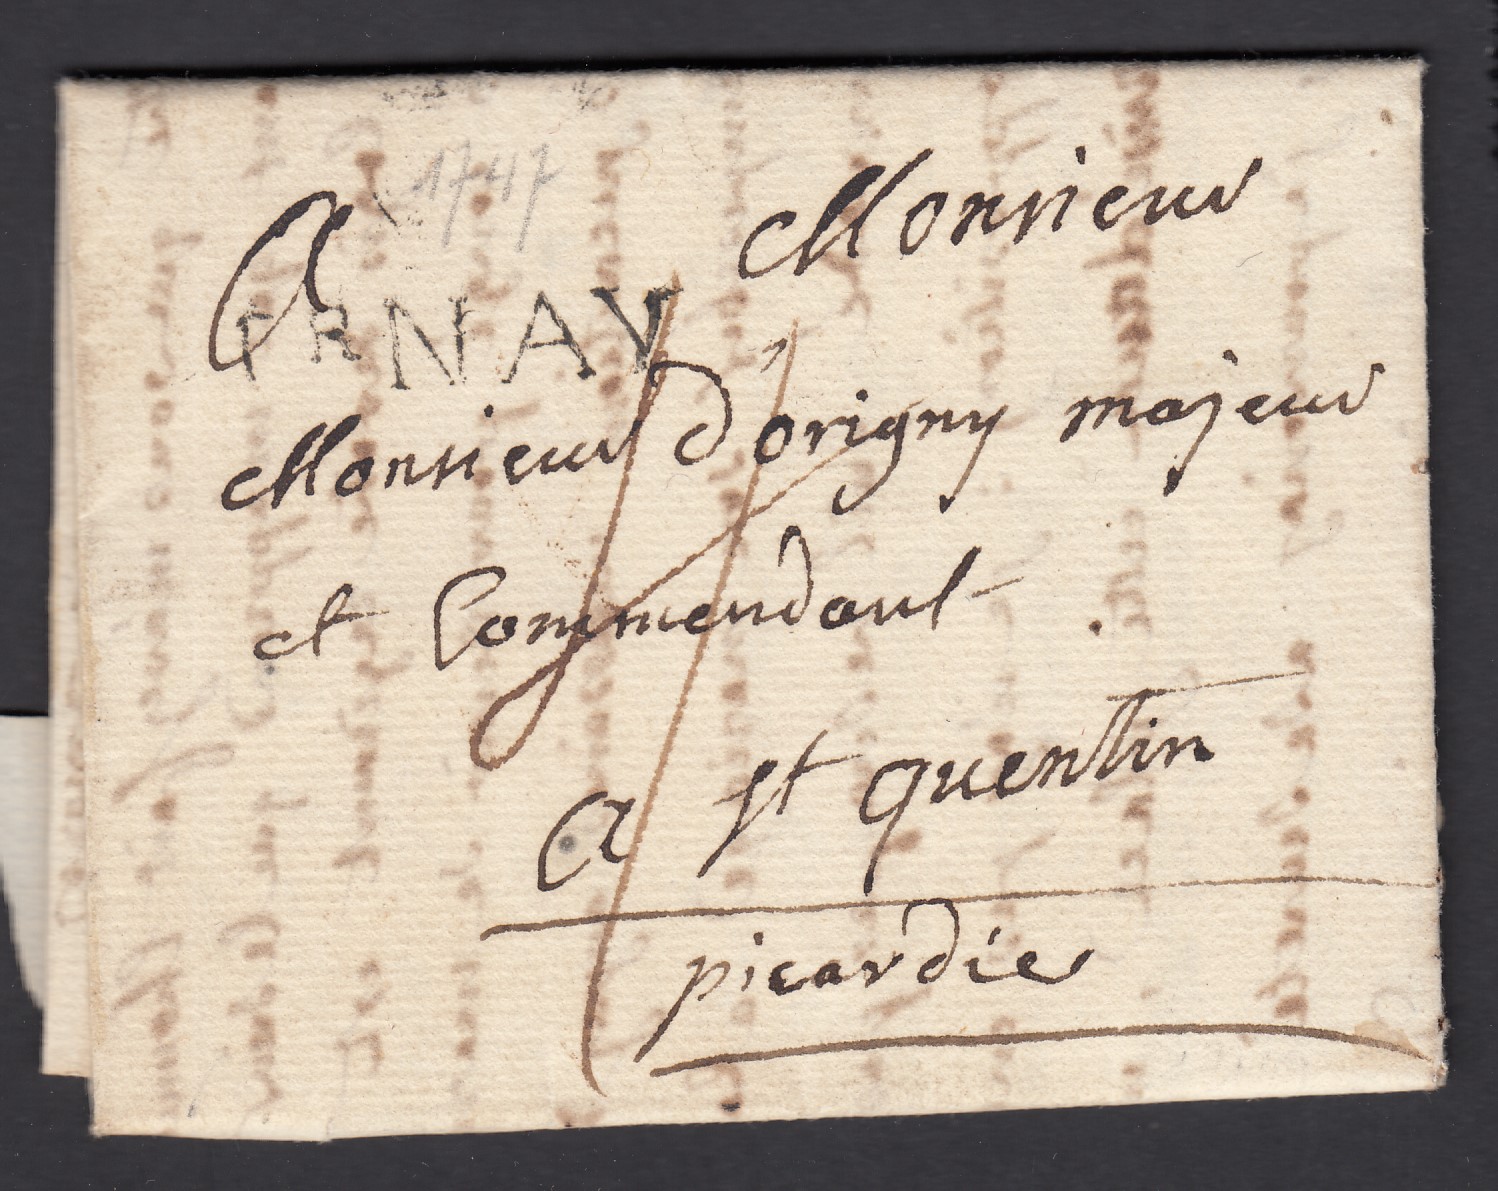 1747
A Monsieur
ERNAY
Monsieur Dorigny majeur
et Commendant
A st quentin
picardie